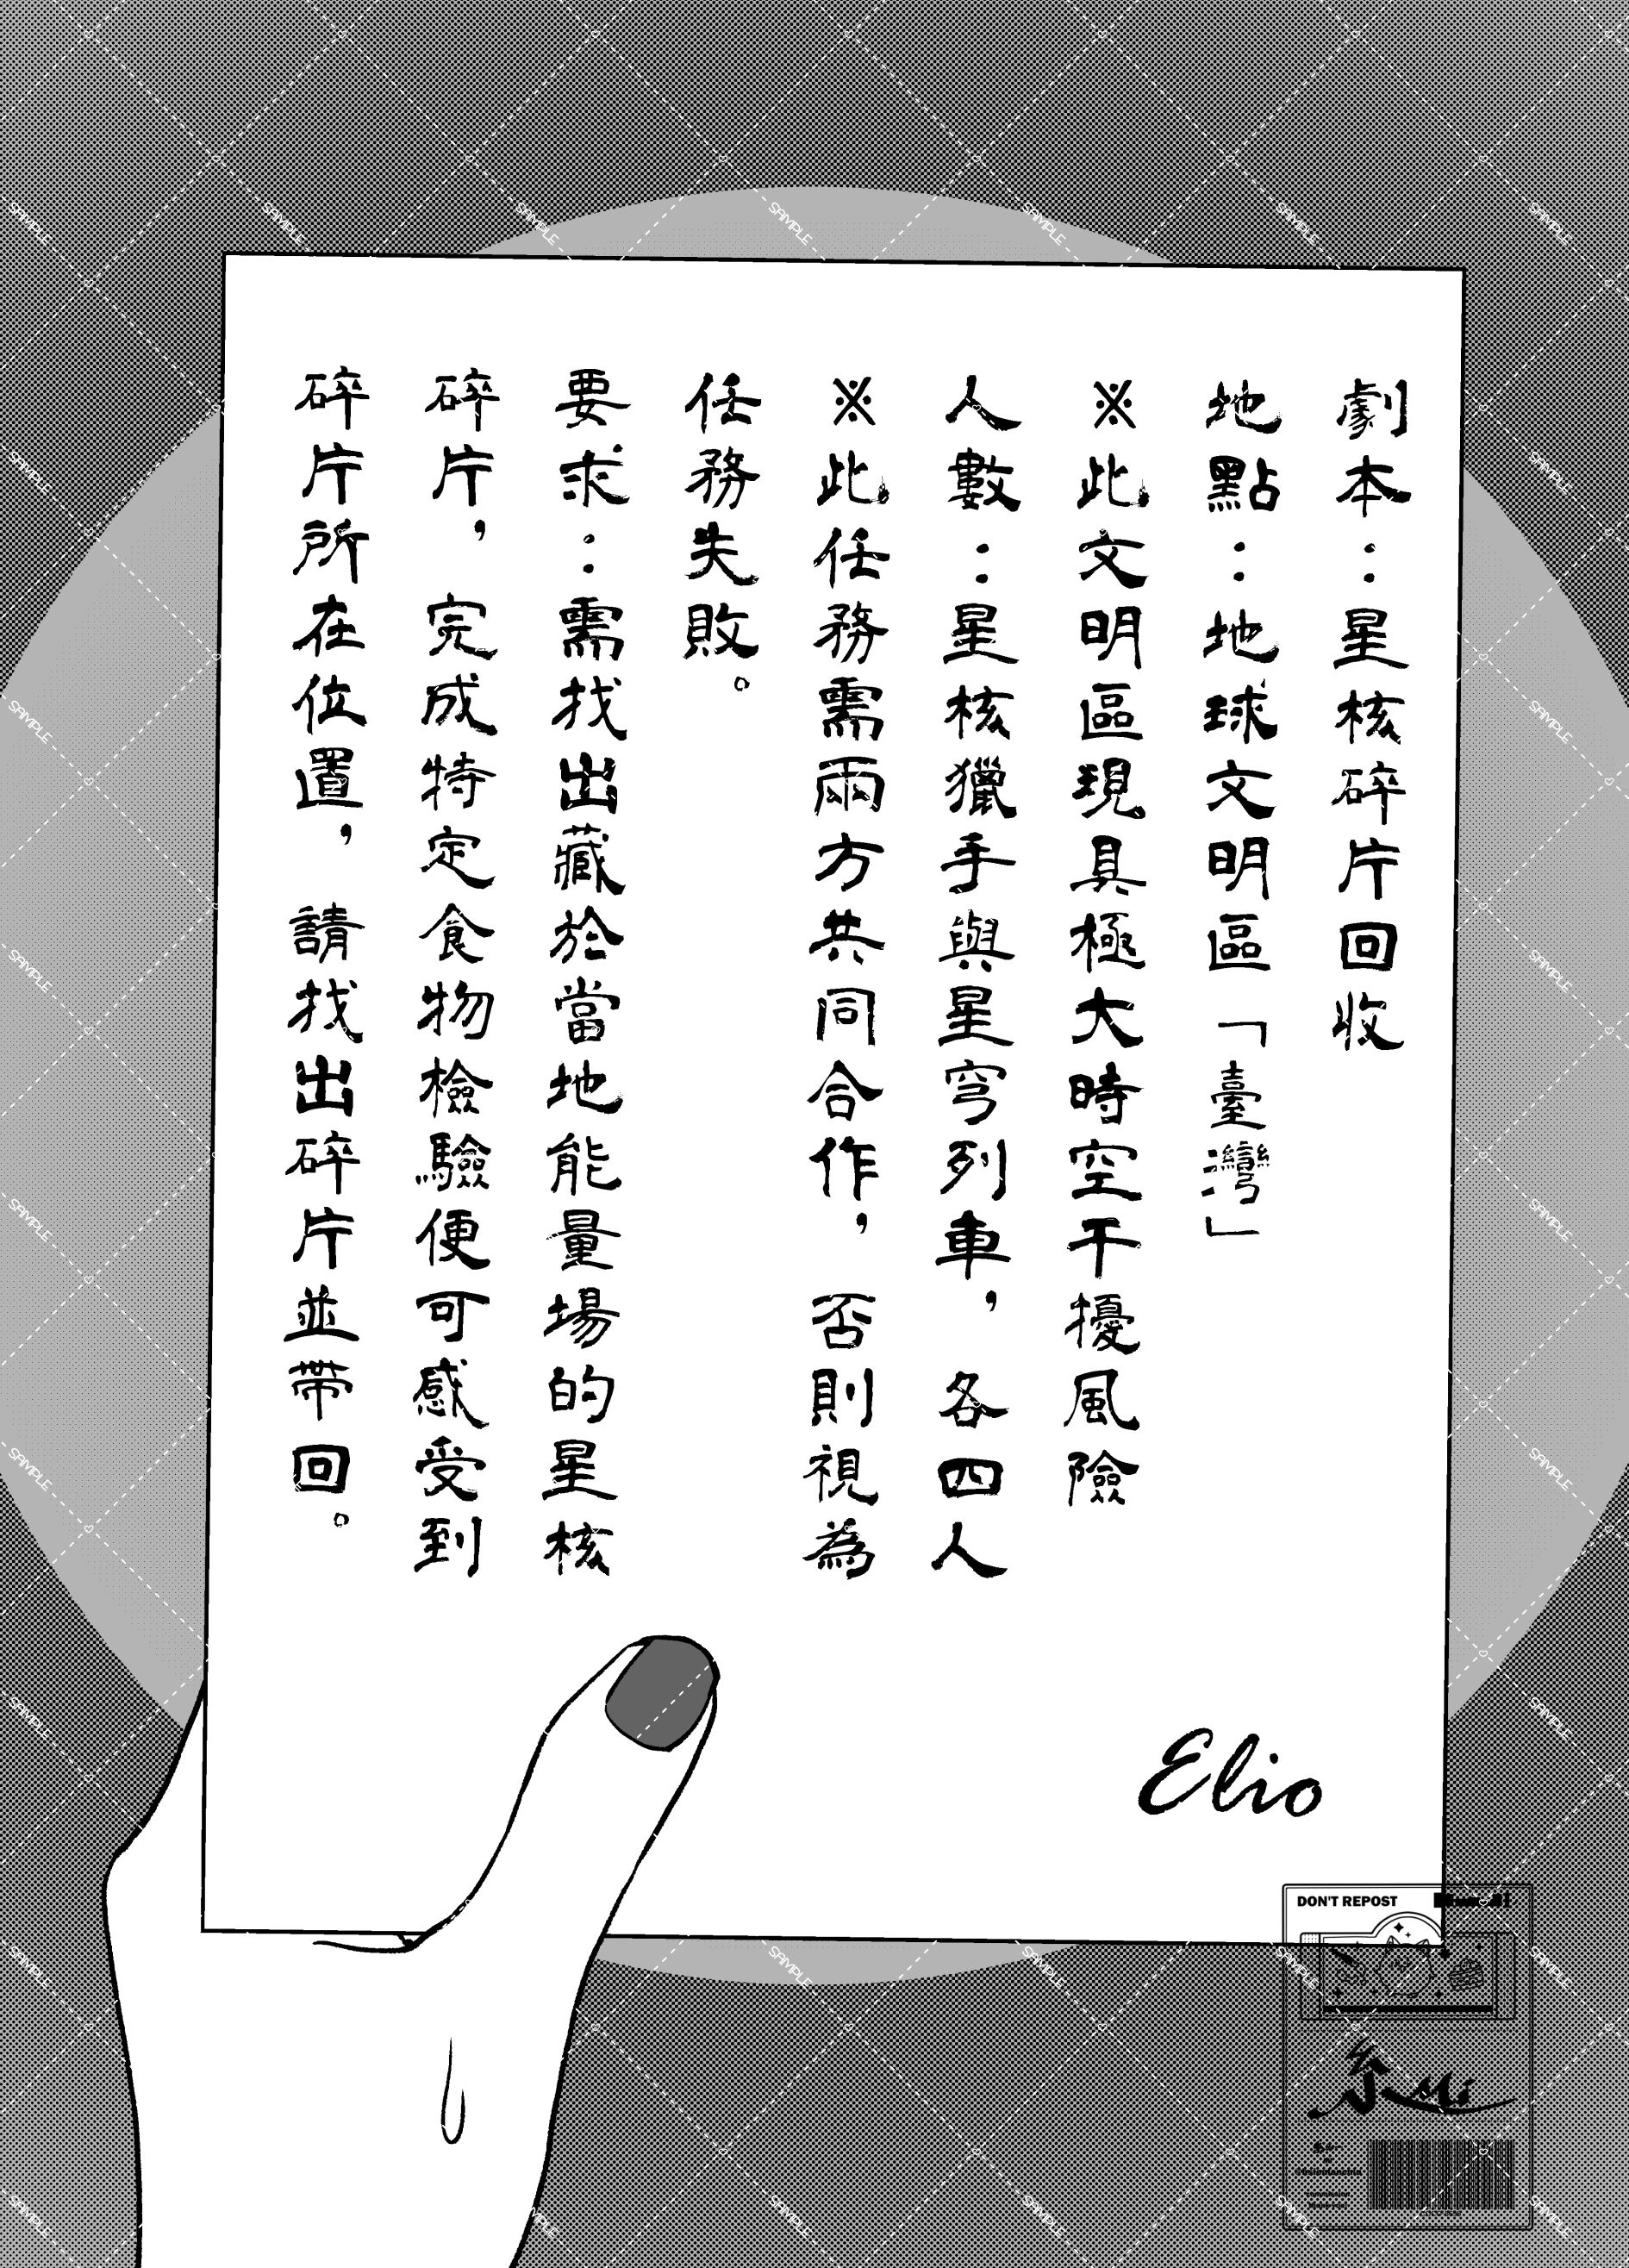 劇本：星核碎片回收
地點：地球文明區「臺灣」
※此文明區現具極大時空干擾風險
人數：星核獵手與星穹列車，各四人
※此任務需兩方共同合作，否則視為
任務失敗。
要求：需找出藏於當地能量場的星核
碎片，完成特定食物檢驗便可感受到
碎片所在位置，請找出碎片並帶回。
Elio
DON'T REPOST
SAMPLE